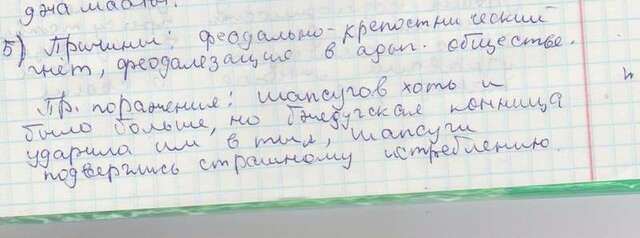 джамааты.
5) Причины: феодально-крепостнический
гнёт, феодалезация в адыг. обществе.
Пр. поражения: шапсугов хоть и
было больше, но бжедугская конница
ударила им в тыл, шапсуги
подверглись страшному истреблению.